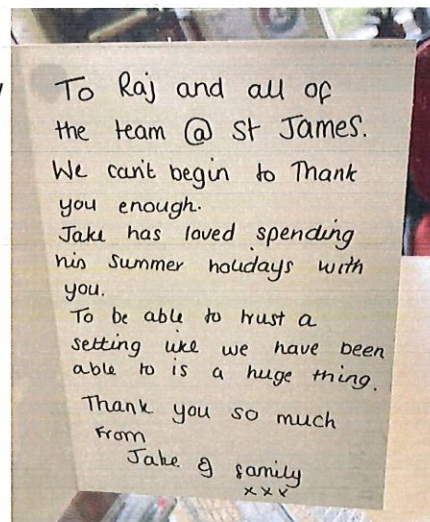 To Raj and all of
the team @ St James.
We can't begin to Thank
you enough.
Jake has loved spending
his summer holidays with
you.
To be able to trust a
setting like we have been
able to is a huge thing.
Thank you so much
From
Jake & family
xxx